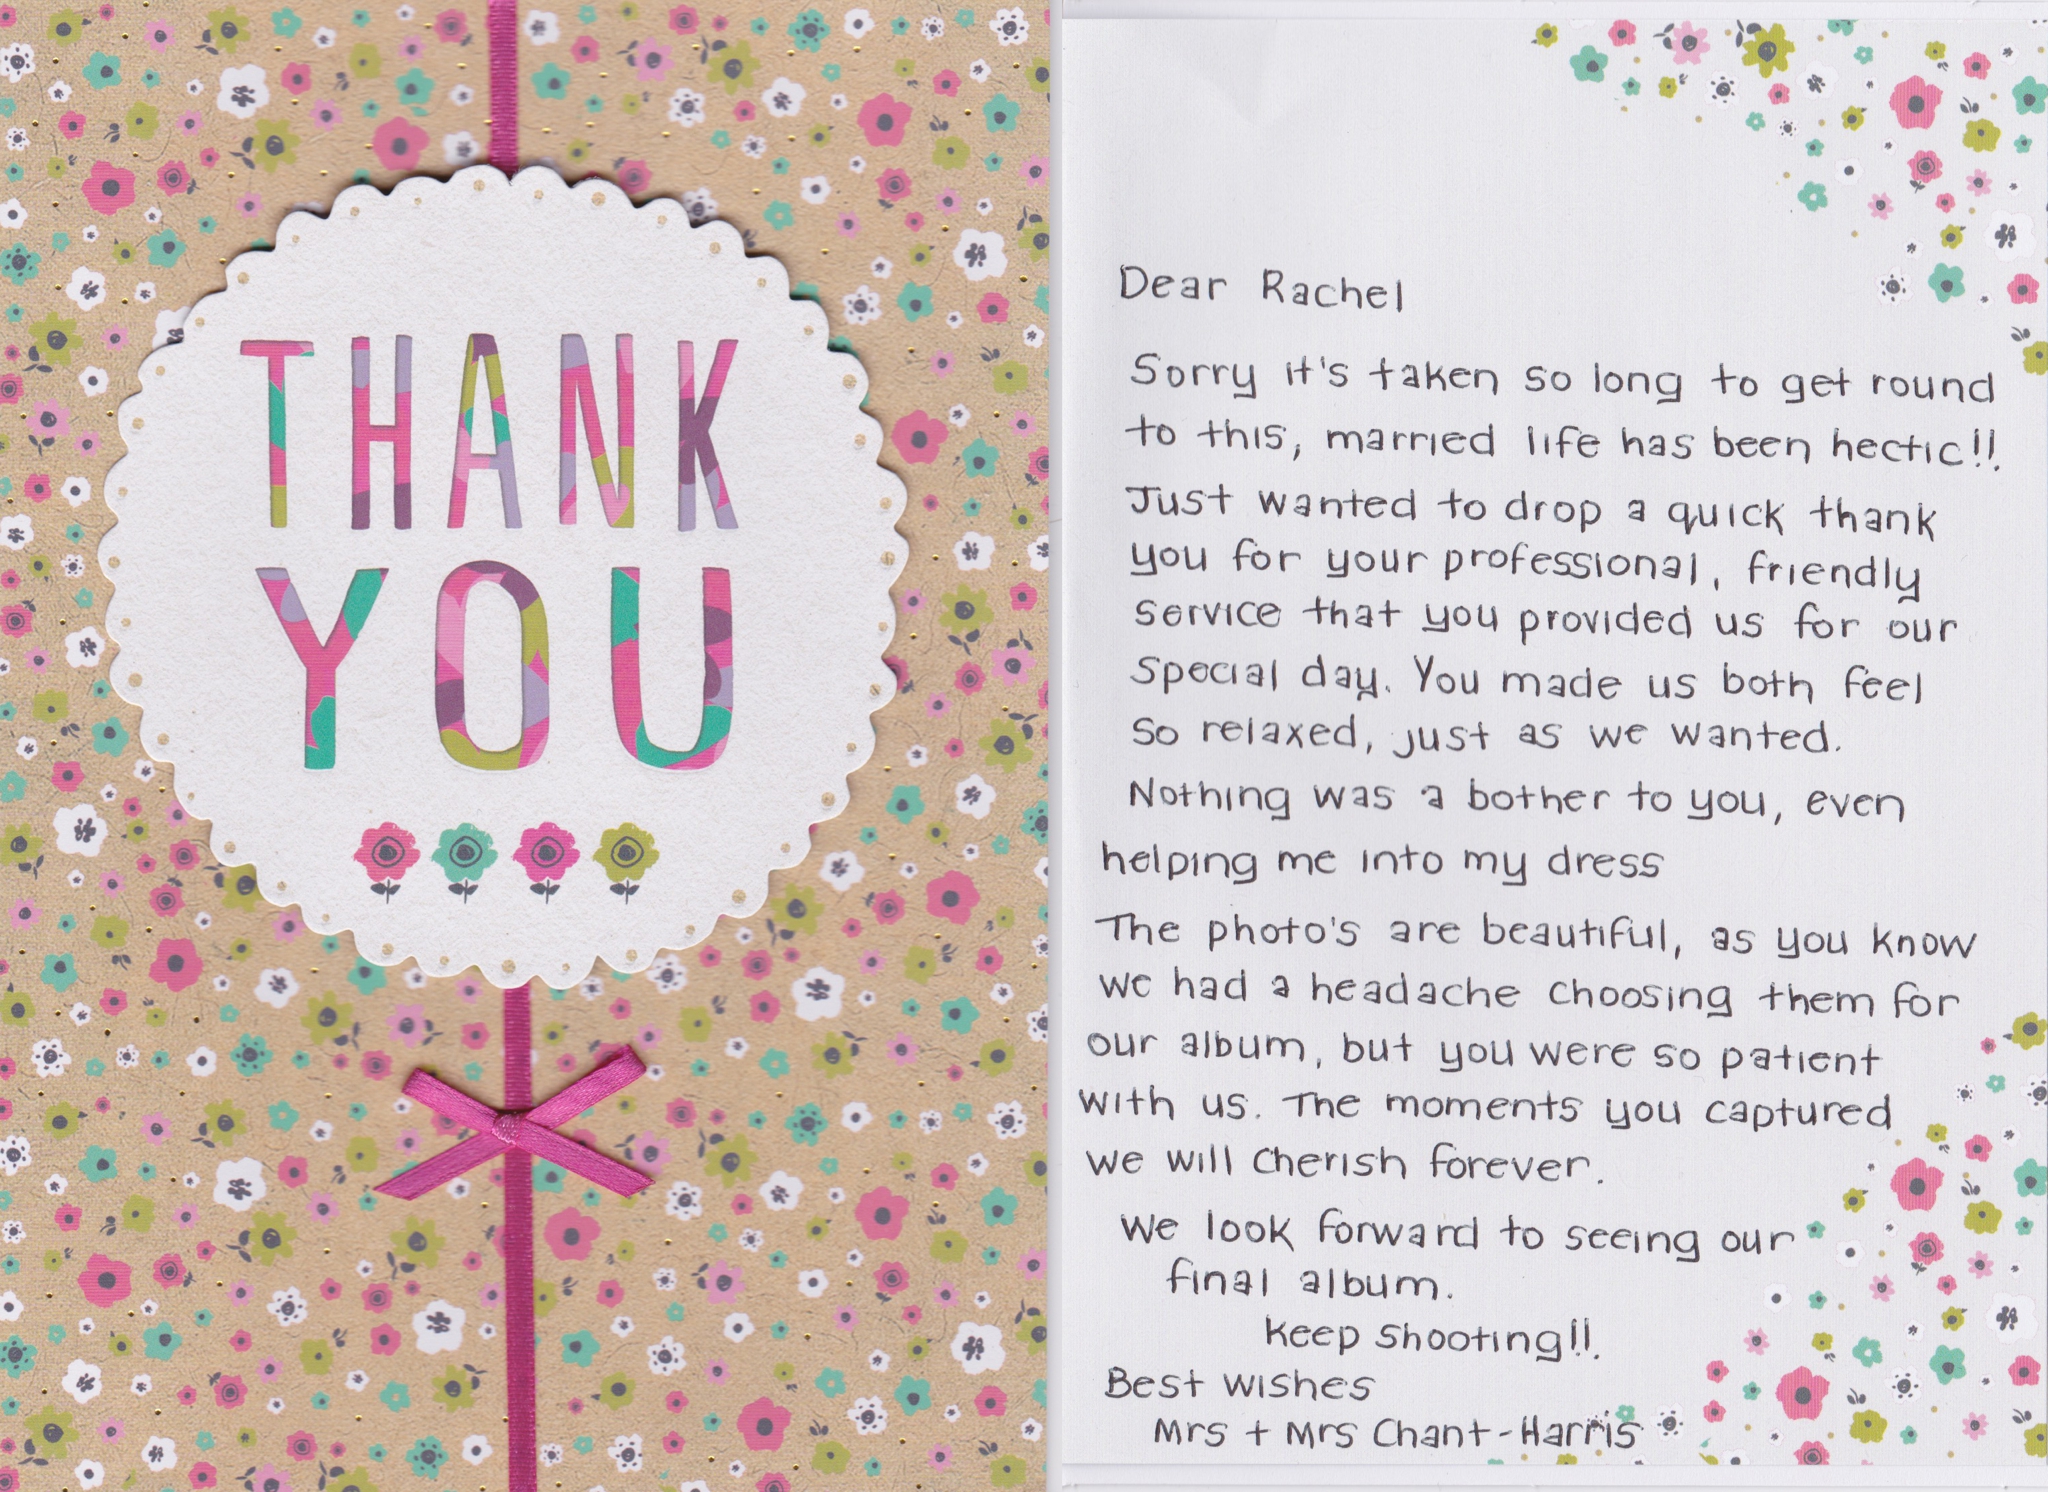 THANK
YOU
Dear Rachel
Sorry it's taken so long to get round
to this, married life has been hectic!!
Just wanted to drop a quick thank
you for your professional, friendly
service that you provided us for our
special day. You made us both feel
so relaxed, just as we wanted.
Nothing was a bother to you, even
helping me into my dress
The photo's are beautiful, as you know
we had a headache choosing them for
our album, but you were so patient
with us. The moments you captured
we will cherish forever.
We look forward to seeing our
final album.
Keep shooting!!
Best wishes
Mrs + Mrs Chant-Harris